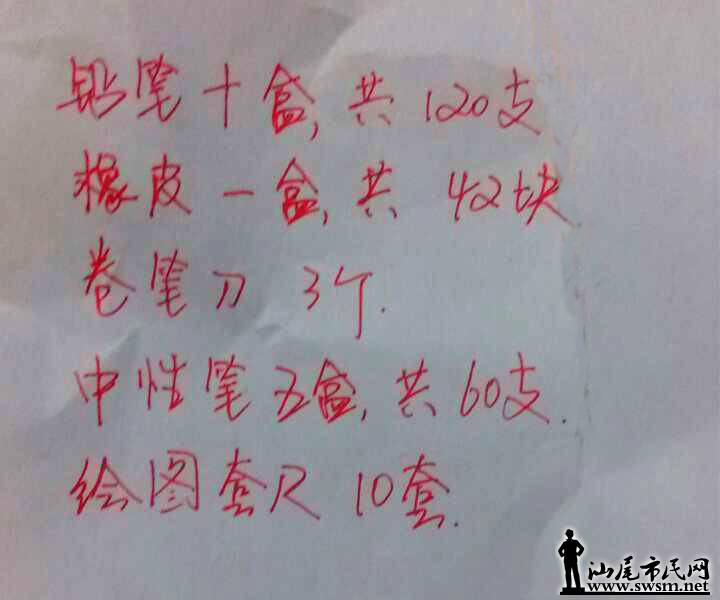 铅笔十盒,共120支
橡皮一盒,共42块
卷笔刀 3个.
中性笔五盒,共60支.
绘图套尺10套.
汕尾市民网
www.swsm.net